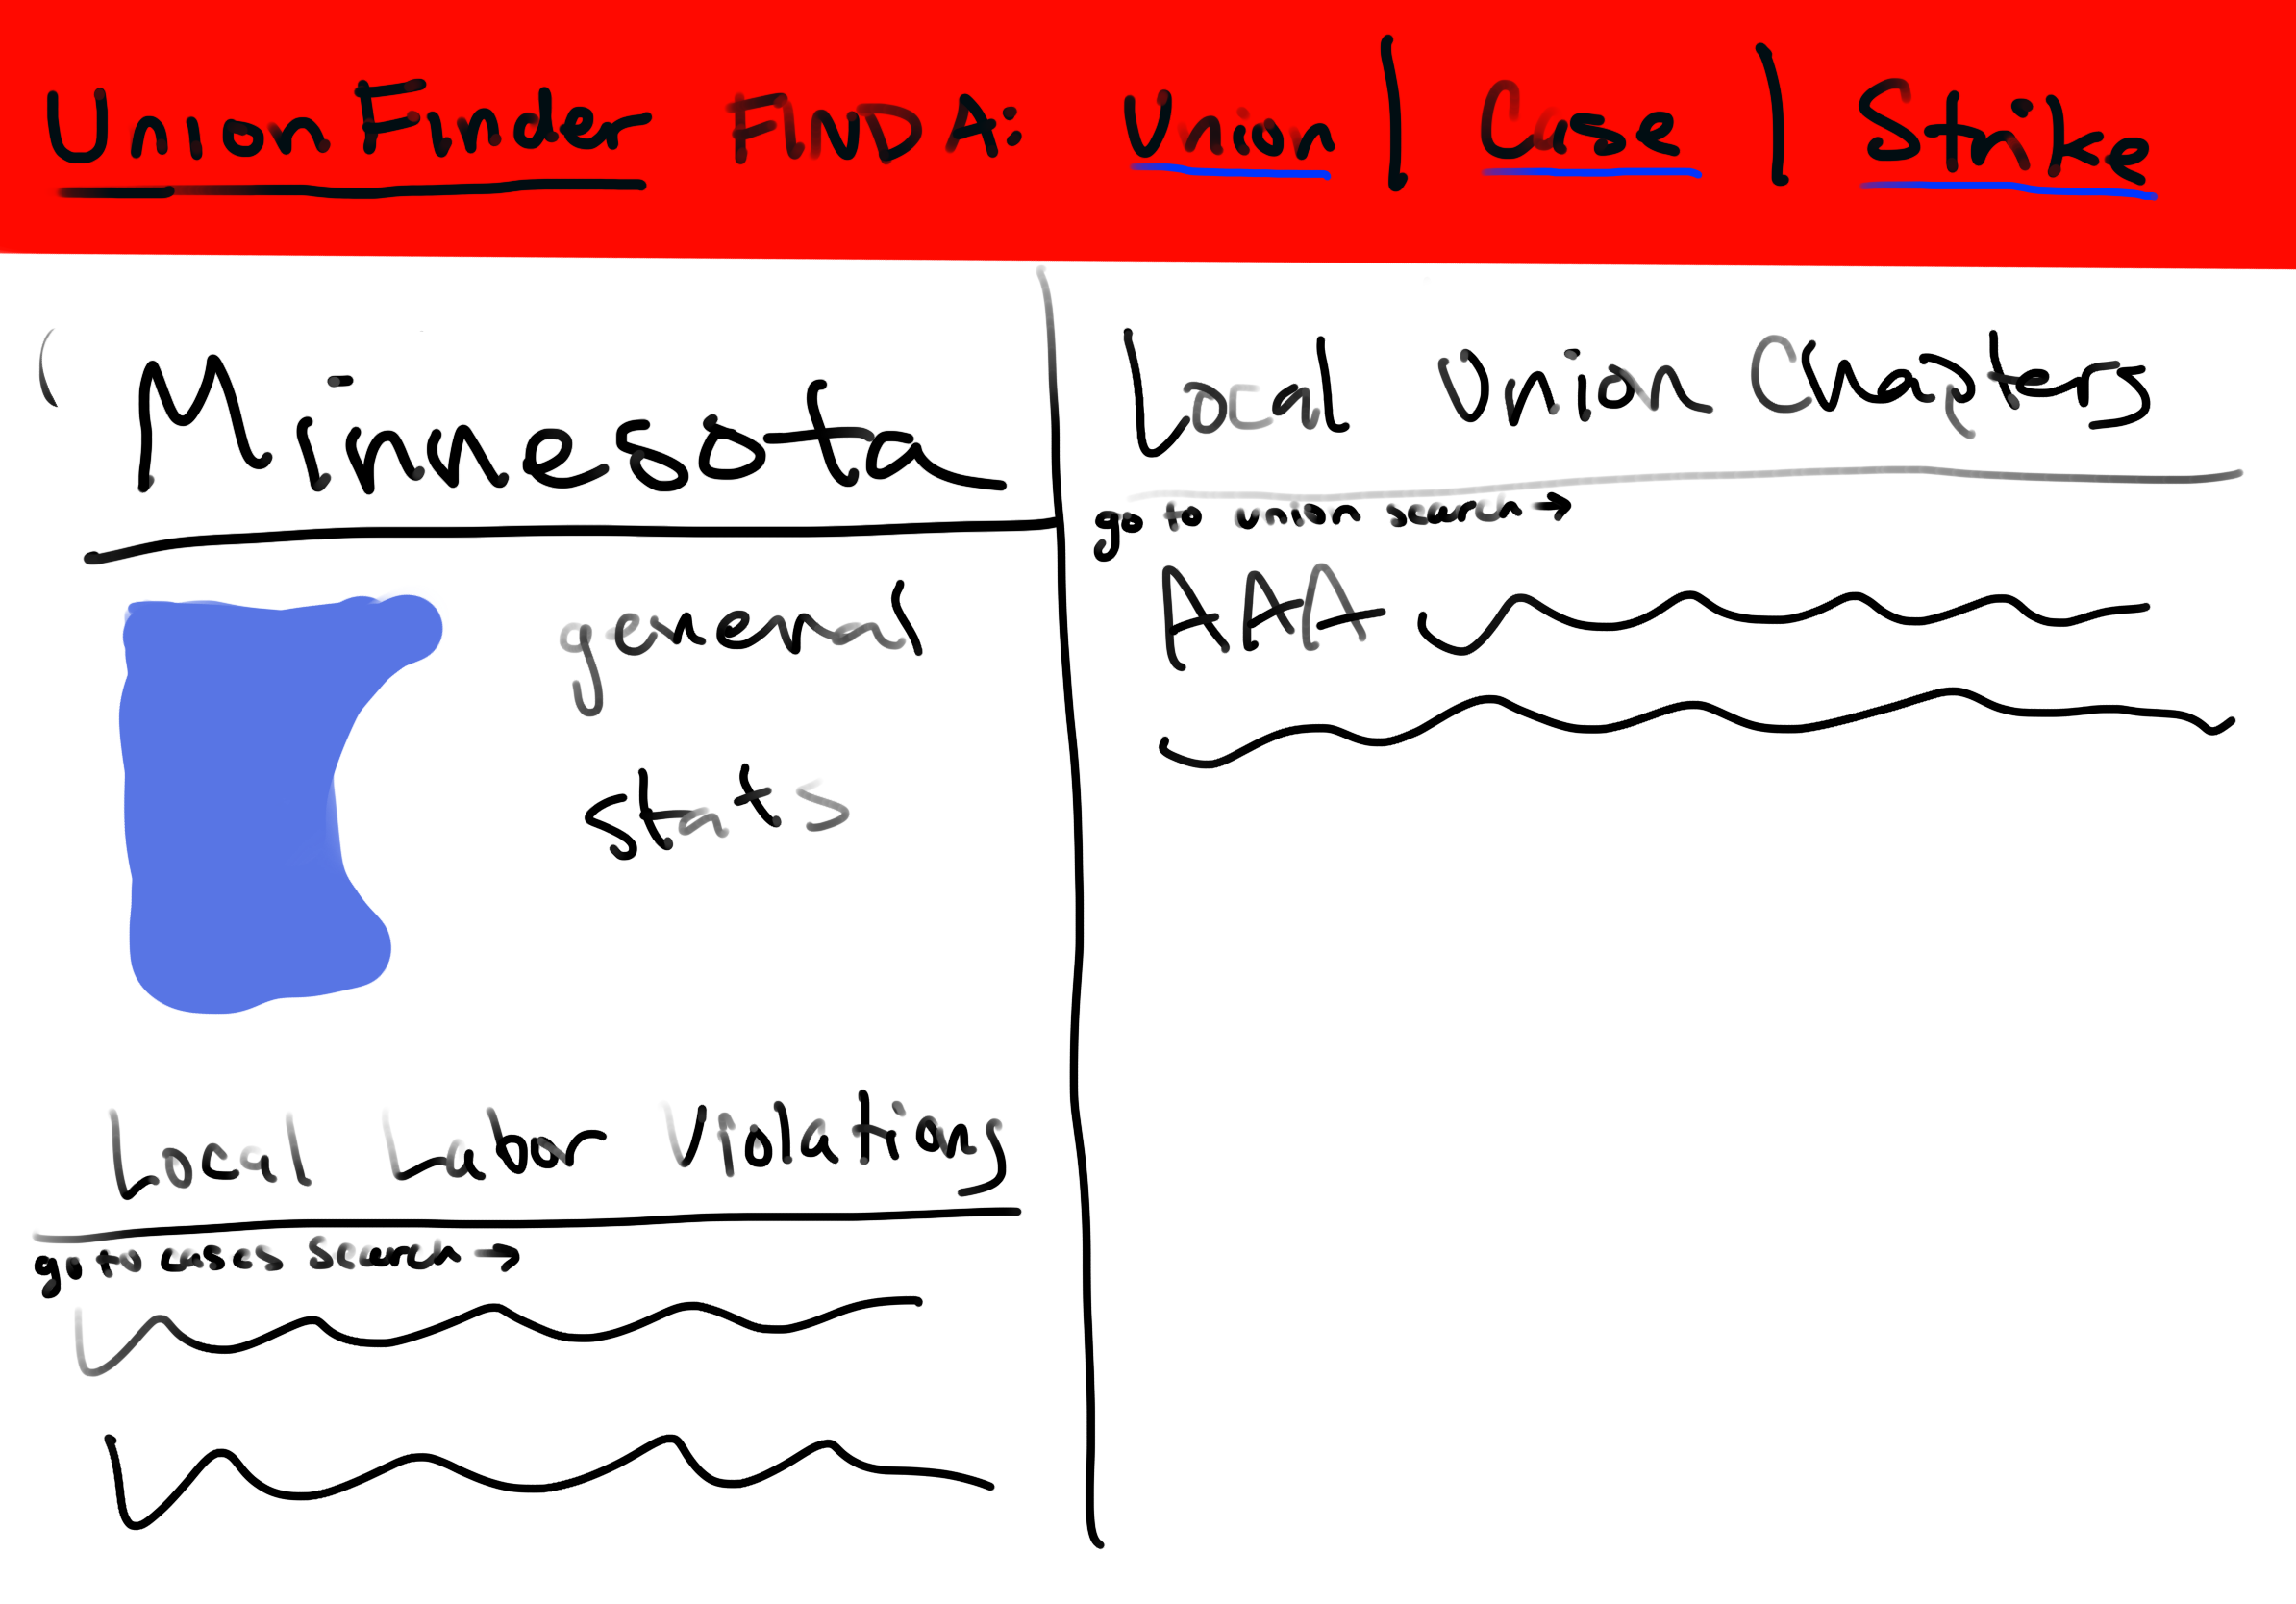 UnionFinder FIND A: Union | Case | Strike
Minnesota
general
stats
Local Labor Violations
go to cases search →
Local Union Chapters
go to union search →
AAA